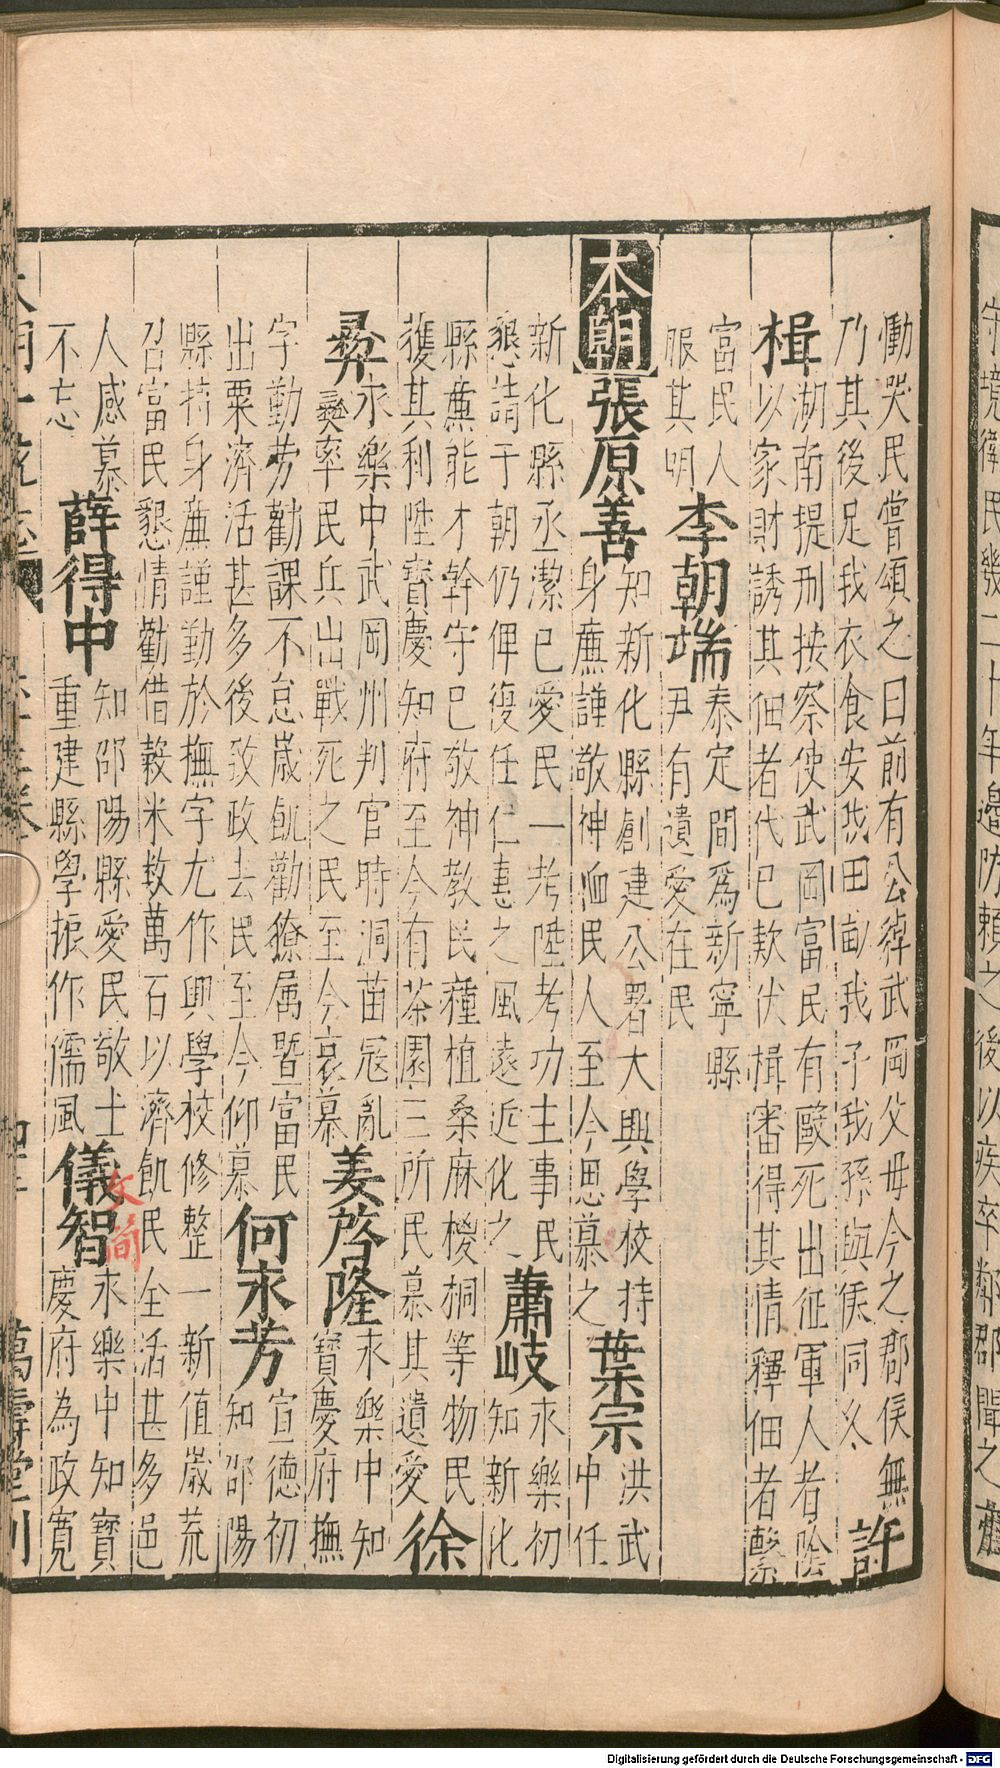 守境衛民幾二十年邊防賴之後以疾卒鄰郡聞之
慟哭民嘗頌之曰前有公綽武岡父母今之郡侯無
乃其後足我衣食安我田畝我子我孫與侯同久 許
楫 湖南提刑按察使武岡富民有毆死出征軍人者陰
以家財誘其佃者代巳款伏楫審得其情釋佃者繫
富民人
服其明
李朝端
泰定間爲新寧縣
尹有遺愛在民
本朝 張原善
知新化縣創建公署大興學校持
身廉謹敬神恤民人至今思慕之
葉宗
洪武
中任
新化縣丞潔巳愛民一考陞考功主事民
懇請于朝仍俾復任仁惠之風遠近化之
蕭岐
永樂初
知新化
縣廉能才幹守巳敬神教民種植桑麻椶桐等物民
獲其利陞寶慶知府至今有茶園三所民慕其遺愛
徐
彝
永樂中武岡州判官時洞苗寇亂
彝率民兵出戰死之民至今哀慕
姜啓隆
永樂中知
寶慶府撫
字勤勞勸課不怠歲飢勸僚属暨富民
出粟濟活甚多後致政去民至今仰慕
何永芳
宣德初
知邵陽
縣持身廉謹勤於撫字尤作興學校修整一新值歲荒
召富民懇情勸借穀米救萬石以濟飢民全活甚多邑
人感慕
不忘
薛得中
知邵陽縣愛民敬士
重建縣學振作儒風
儀智
文簡
永樂中知寶
慶府為政寬
大明一統志 萬壽堂刊
Digitalisierung gefördert durch die Deutsche Forschungsgemeinschaft - DFG